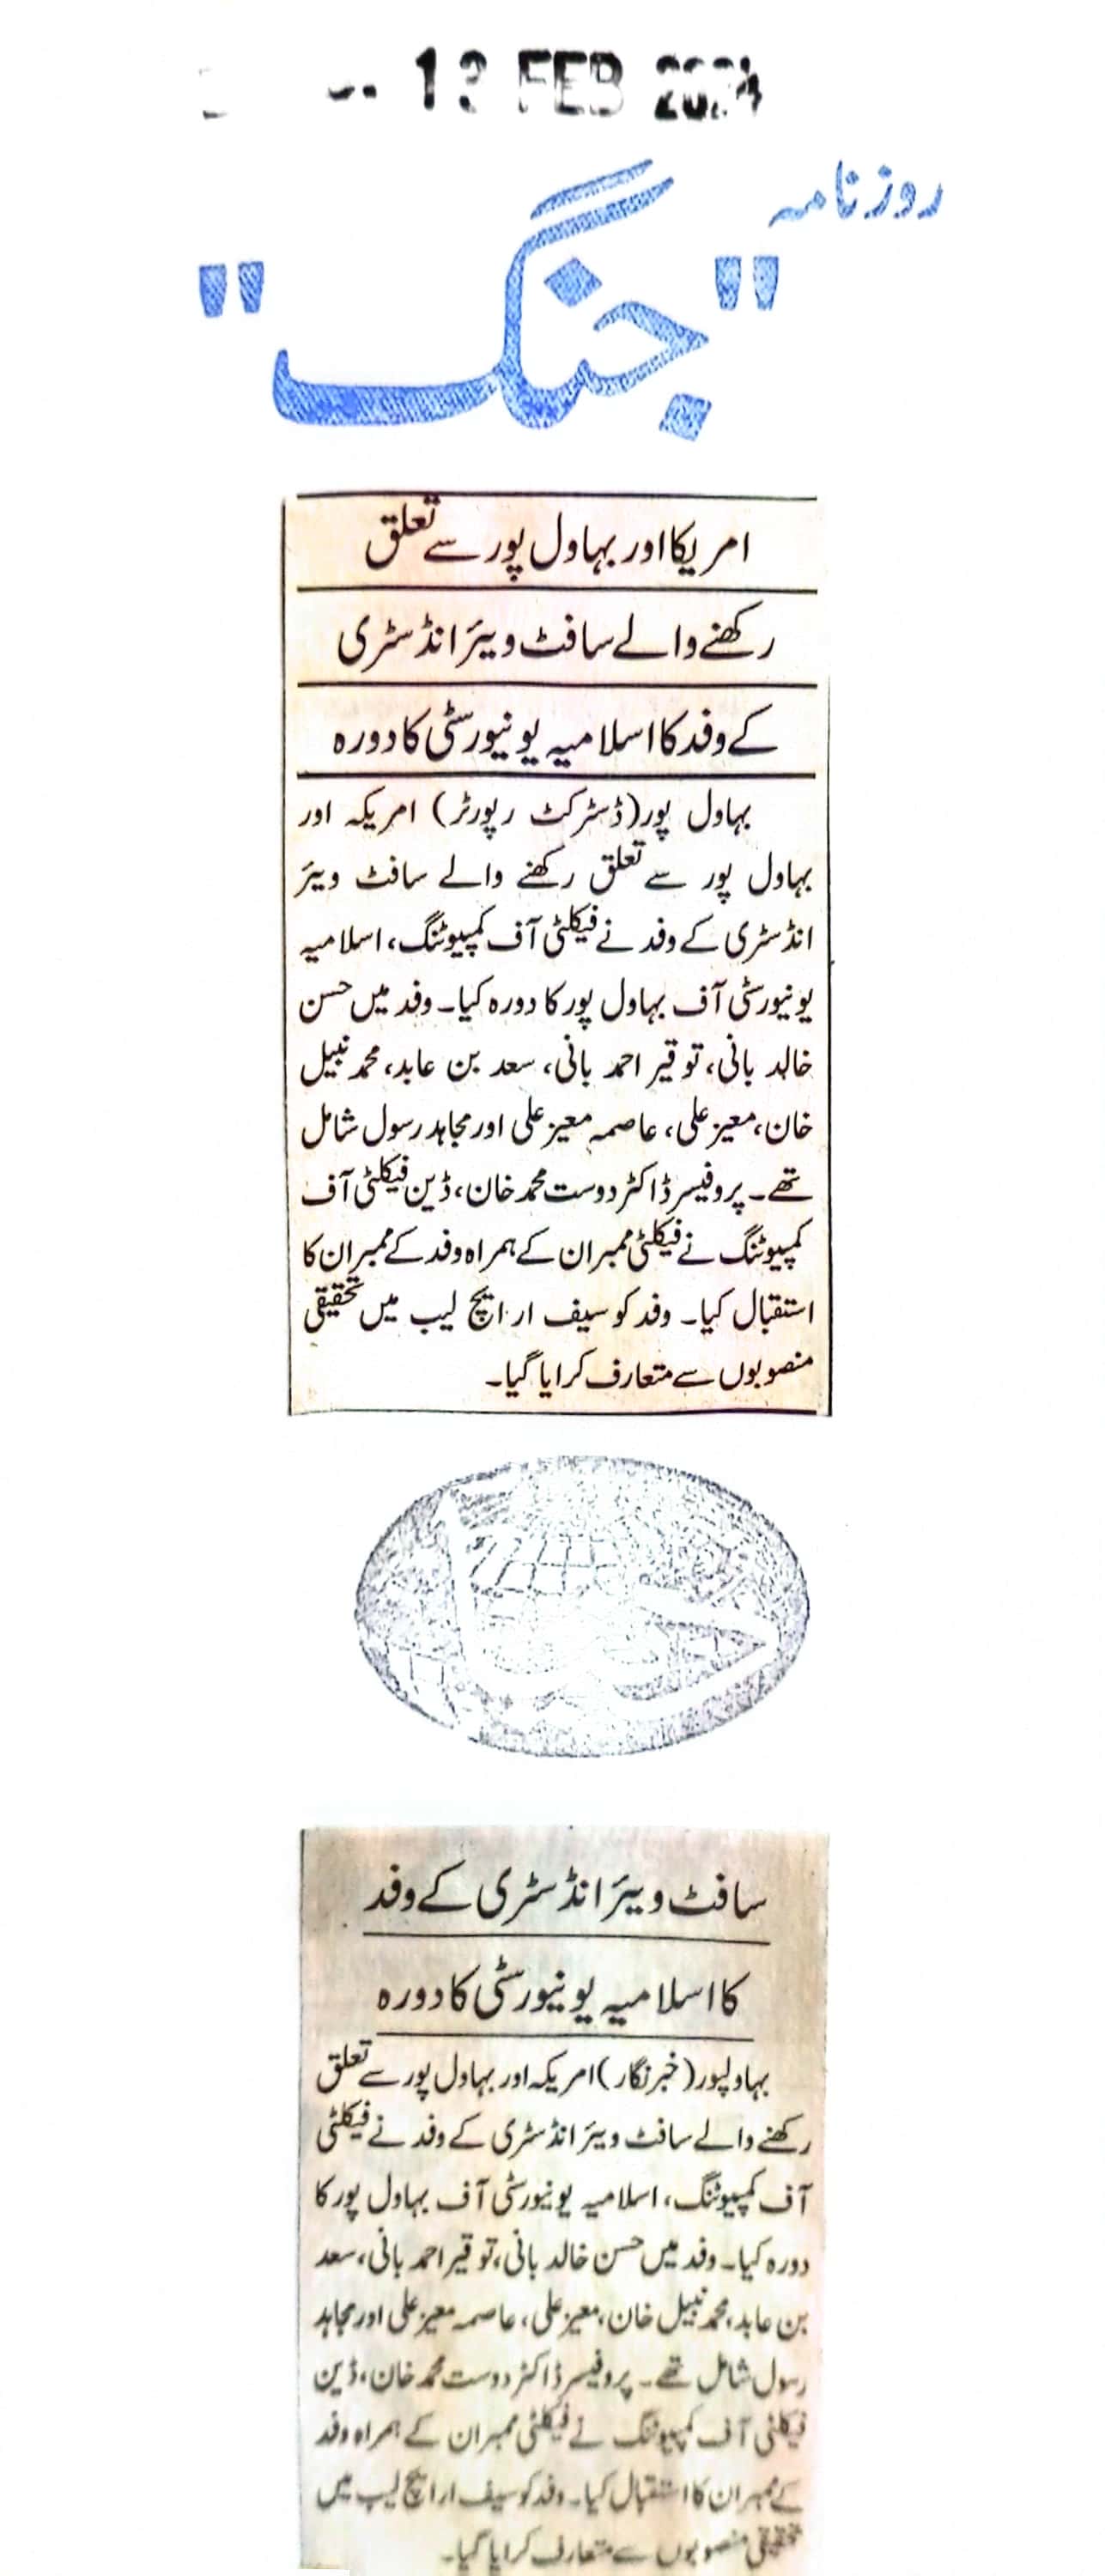 13 FEB 2024
روزنامہ
"جنگ"
امریکا اور بہاول پور سے تعلق
رکھنے والے سافٹ ویئر انڈسٹری
کے وفد کا اسلامیہ یونیورسٹی کا دورہ
بہاول پور (ڈسٹرکٹ رپورٹر) امریکہ اور
بہاول پور سے تعلق رکھنے والے سافٹ ویئر
انڈسٹری کے وفد نے فیکلٹی آف کمپیوٹنگ، اسلامیہ
یونیورسٹی آف بہاول پور کا دورہ کیا۔ وفد میں حسن
خالد بانی، توقیر احمد بانی، سعد بن عابد، محمد نبیل
خان، معیز علی، عاصمہ معیز علی اور مجاہد رسول شامل
تھے۔ پروفیسر ڈاکٹر دوست محمد خان، ڈین فیکلٹی آف
کمپیوٹنگ نے فیکلٹی ممبران کے ہمراہ وفد کے ممبران کا
استقبال کیا۔ وفد کو سیف ار ایچ لیب میں تحقیقی
منصوبوں سے متعارف کرایا گیا۔
سافٹ ویئر انڈسٹری کے وفد
کا اسلامیہ یونیورسٹی کا دورہ
بہاولپور (خبر نگار) امریکہ اور بہاول پور سے تعلق
رکھنے والے سافٹ ویئر انڈسٹری کے وفد نے فیکلٹی
آف کمپیوٹنگ، اسلامیہ یونیورسٹی آف بہاول پور کا
دورہ کیا۔ وفد میں حسن خالد بانی، توقیر احمد بانی، سعد
بن عابد، محمد نبیل خان، معیز علی، عاصمہ معیز علی اور مجاہد
رسول شامل تھے۔ پروفیسر ڈاکٹر دوست محمد خان، ڈین
فیکلٹی آف کمپیوٹنگ نے فیکلٹی ممبران کے ہمراہ وفد
کے ممبران کا استقبال کیا۔ وفد کو سیف ار ایچ لیب میں
تحقیقی منصوبوں سے متعارف کرایا گیا۔